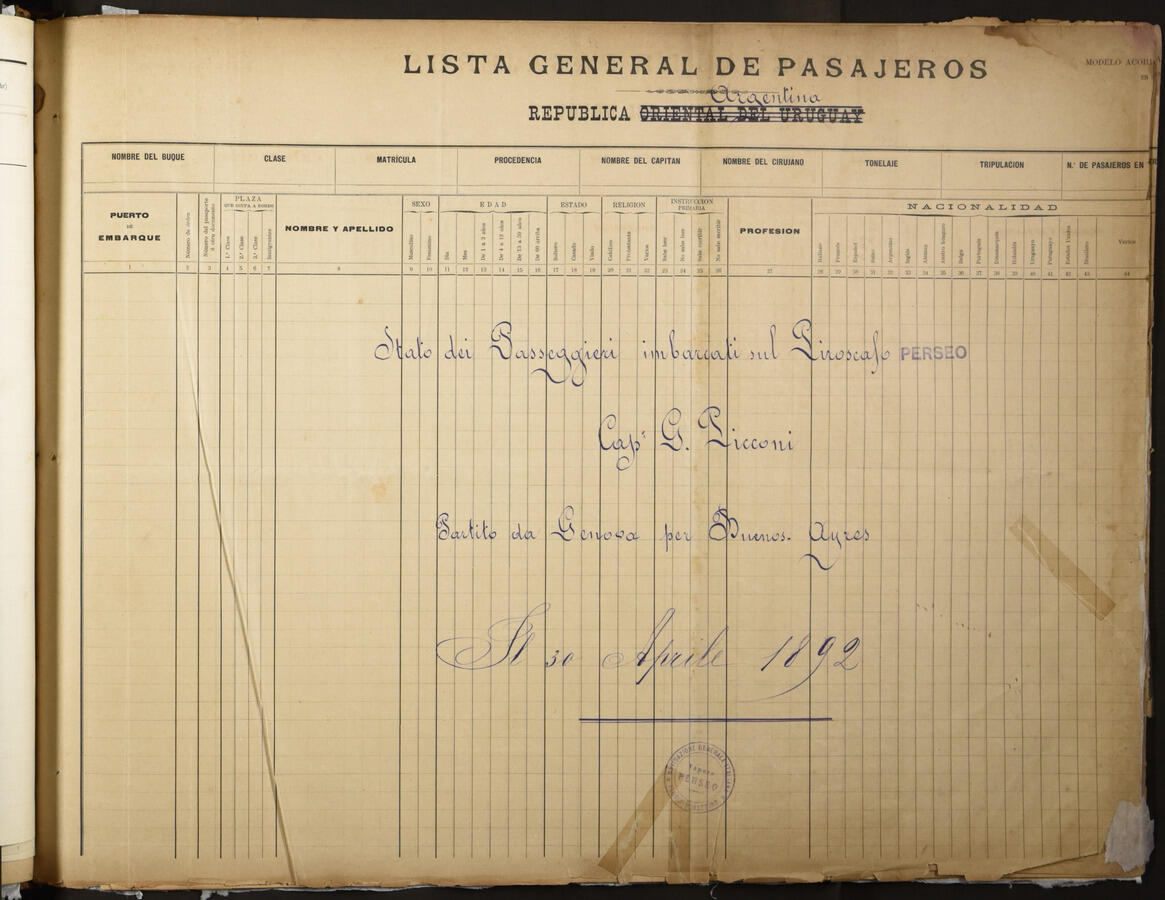 LISTA GENERAL DE PASAJEROS
MODELO ACOR
EN
Argentina
REPUBLICA ORIENTAL DEL URUGUAY
NOMBRE DEL BUQUE CLASE MATRÍCULA PROCEDENCIA NOMBRE DEL CAPITAN NOMBRE DEL CIRUJANO TONELAJE TRIPULACION N.º DE PASAJEROS EN
PUERTO
DE
EMBARQUE
Número de orden
Número del pasaporte
ú otro documento
PLAZA
QUE OCUPA A BORDO
1.ª Clase
2.ª Clase
3.ª Clase
Inmigrantes
NOMBRE Y APELLIDO
SEXO
Masculino
Femenino
EDAD
Día
Mes
De 1 a 3 años
De 4 a 12 años
De 13 a 59 años
De 60 arriba
ESTADO
Soltero
Casado
Viudo
RELIGION
Católico
Protestante
Varios
INSTRUCCION
PRIMARIA
Sabe leer
No sabe leer
Sabe escribir
No sabe escribir
PROFESION
NACIONALIDAD
Italiano
Francés
Español
Suizo
Argentino
Inglés
Aleman
Austro húngaro
Belga
Portugués
Dinamarqués
Holandés
Uruguayo
Paraguayo
Estados Unidos
Brasilero
Varios
1 2 3 4 5 6 7 8 9 10 11 12 13 14 15 16 17 18 19 20 21 22 23 24 25 26 27 28 29 30 31 32 33 34 35 36 37 38 39 40 41 42 43 44
Stato dei Passeggieri imbarcati sul Piroscafo PERSEO
Cap.º G. Picconi
Partito da Genova per Buenos-Ayres
Il 30 Aprile 1892
NAVIGAZIONE GENERALE ITALIANA
Vapore
PERSEO